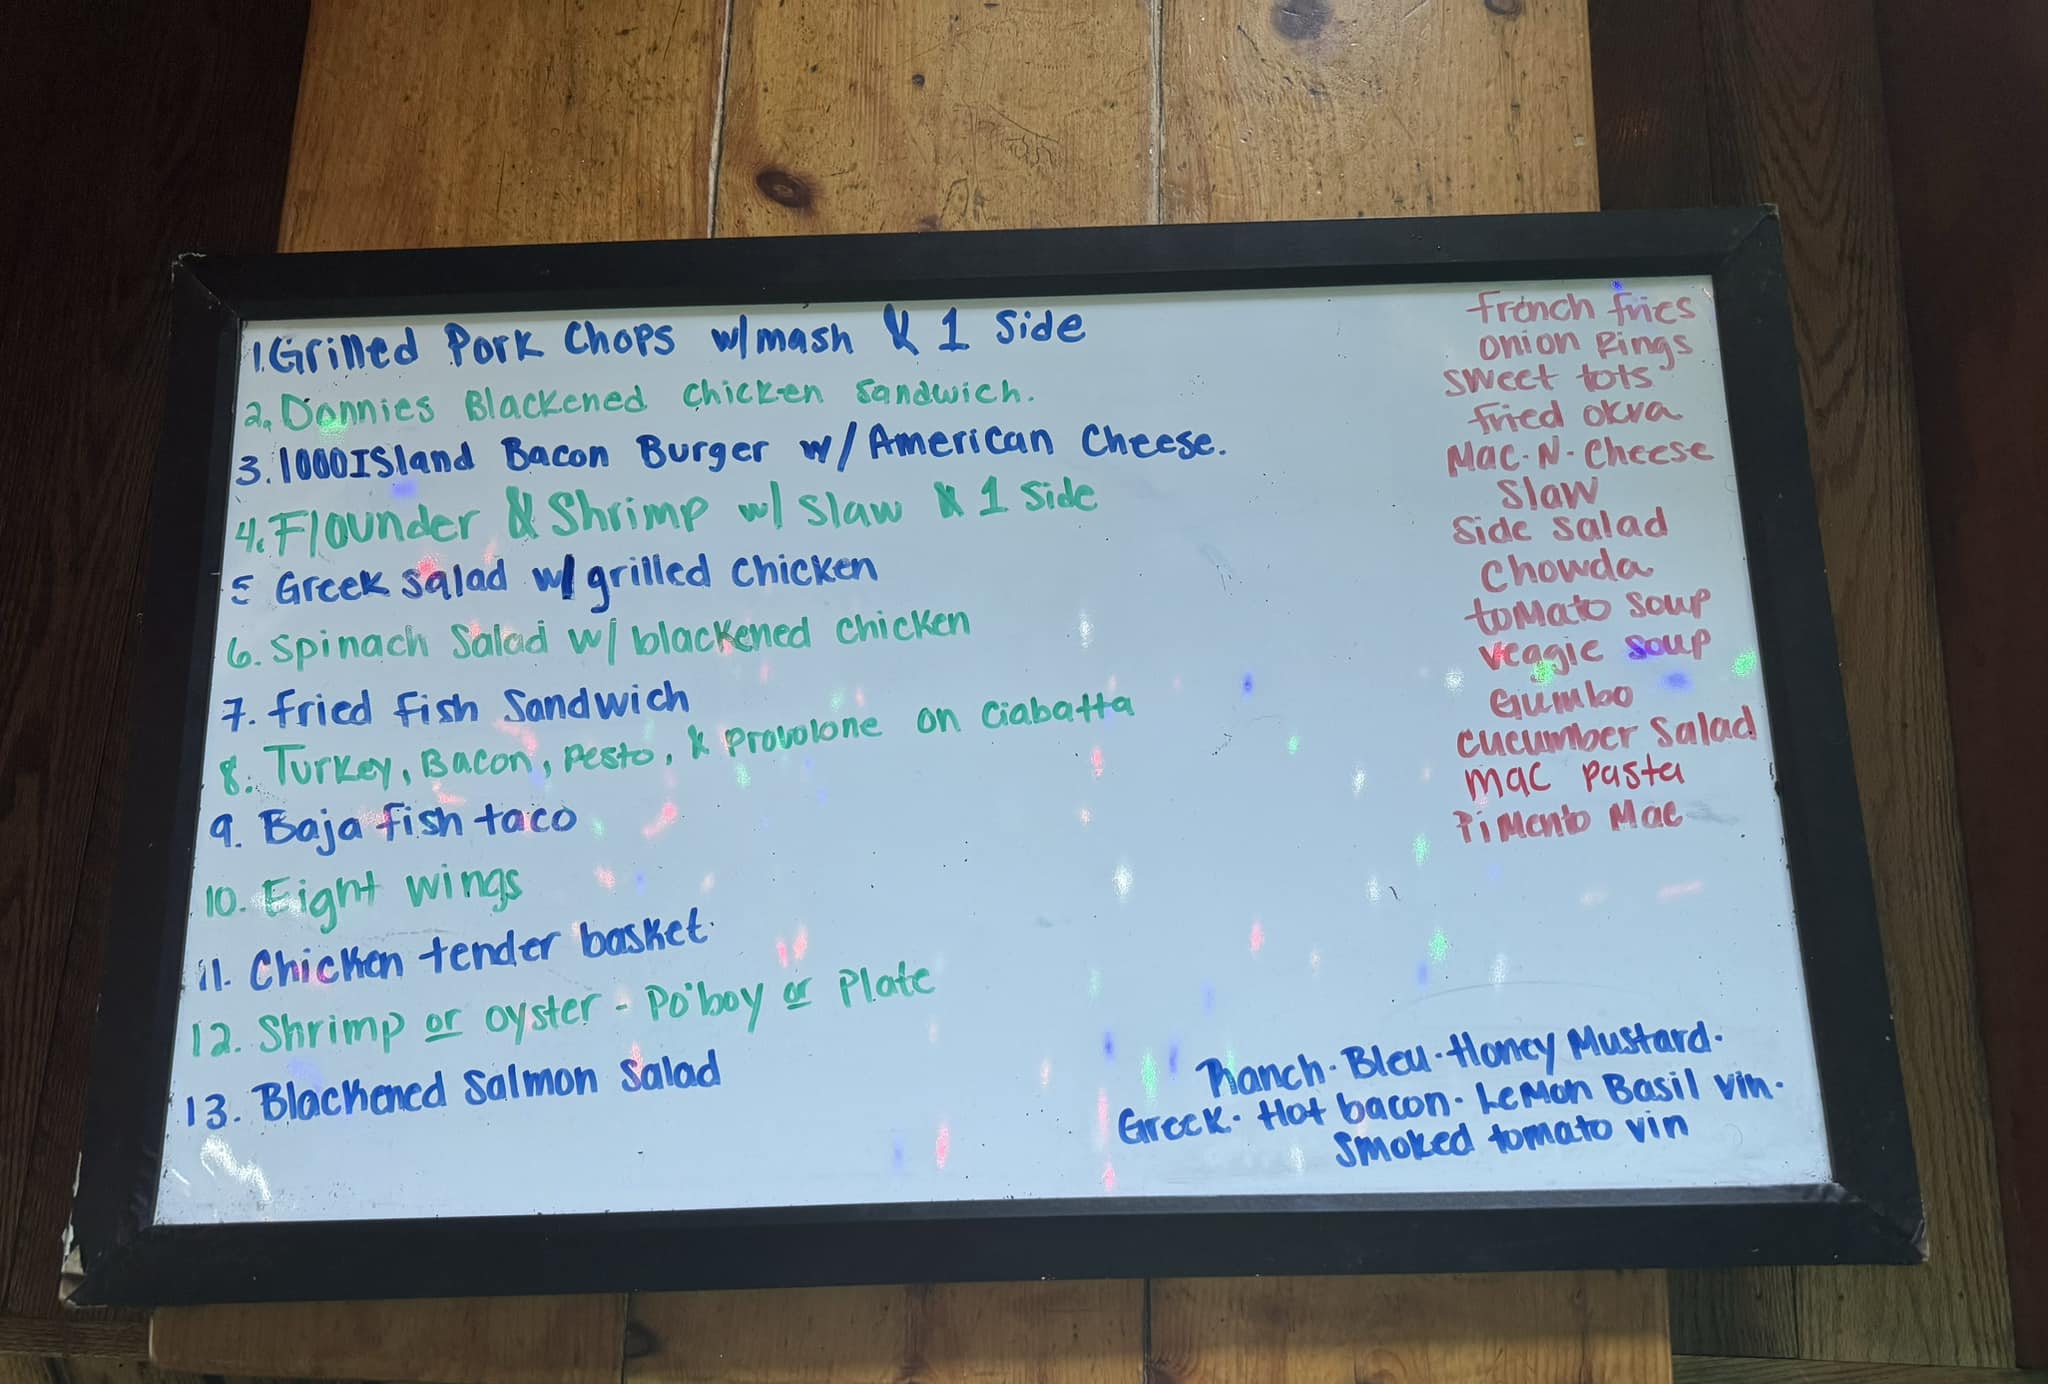 1. Grilled Pork Chops w/mash & 1 Side
2. Donnies Blackened chicken Sandwich.
3. 1000 ISland Bacon Burger w/ American Cheese.
4. Flounder & Shrimp w/ Slaw & 1 Side
5 Greek Salad w/ grilled Chicken
6. Spinach Salad w/ blackened chicken
7. fried fish Sandwich
8. Turkey, Bacon, Pesto, & Provolone on Ciabatta
9. Baja fish taco
10. Eight wings
11. Chicken tender basket.
12. Shrimp or oyster - Po'boy or Plate
13. Blackened Salmon Salad
french fries
onion Rings
sweet tots
fried okra
Mac-N-Cheese
Slaw
Side Salad
Chowda
toMato Soup
veggie Soup
Gumbo
cucumber Salad
mac pasta
PiMento Mac
Ranch · Bleu · Honey Mustard ·
Greek · Hot bacon · LeMon Basil vin ·
Smoked tomato vin